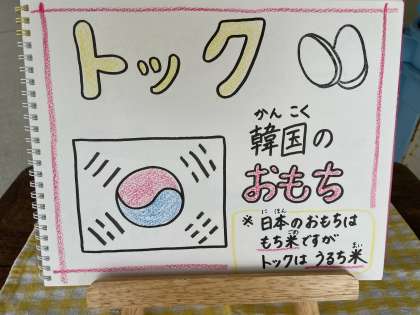 トック
かんこく
韓国の
おもち
にほん
※日本のおもちは
ごめ
もち米ですが
まい
トックはうるち米